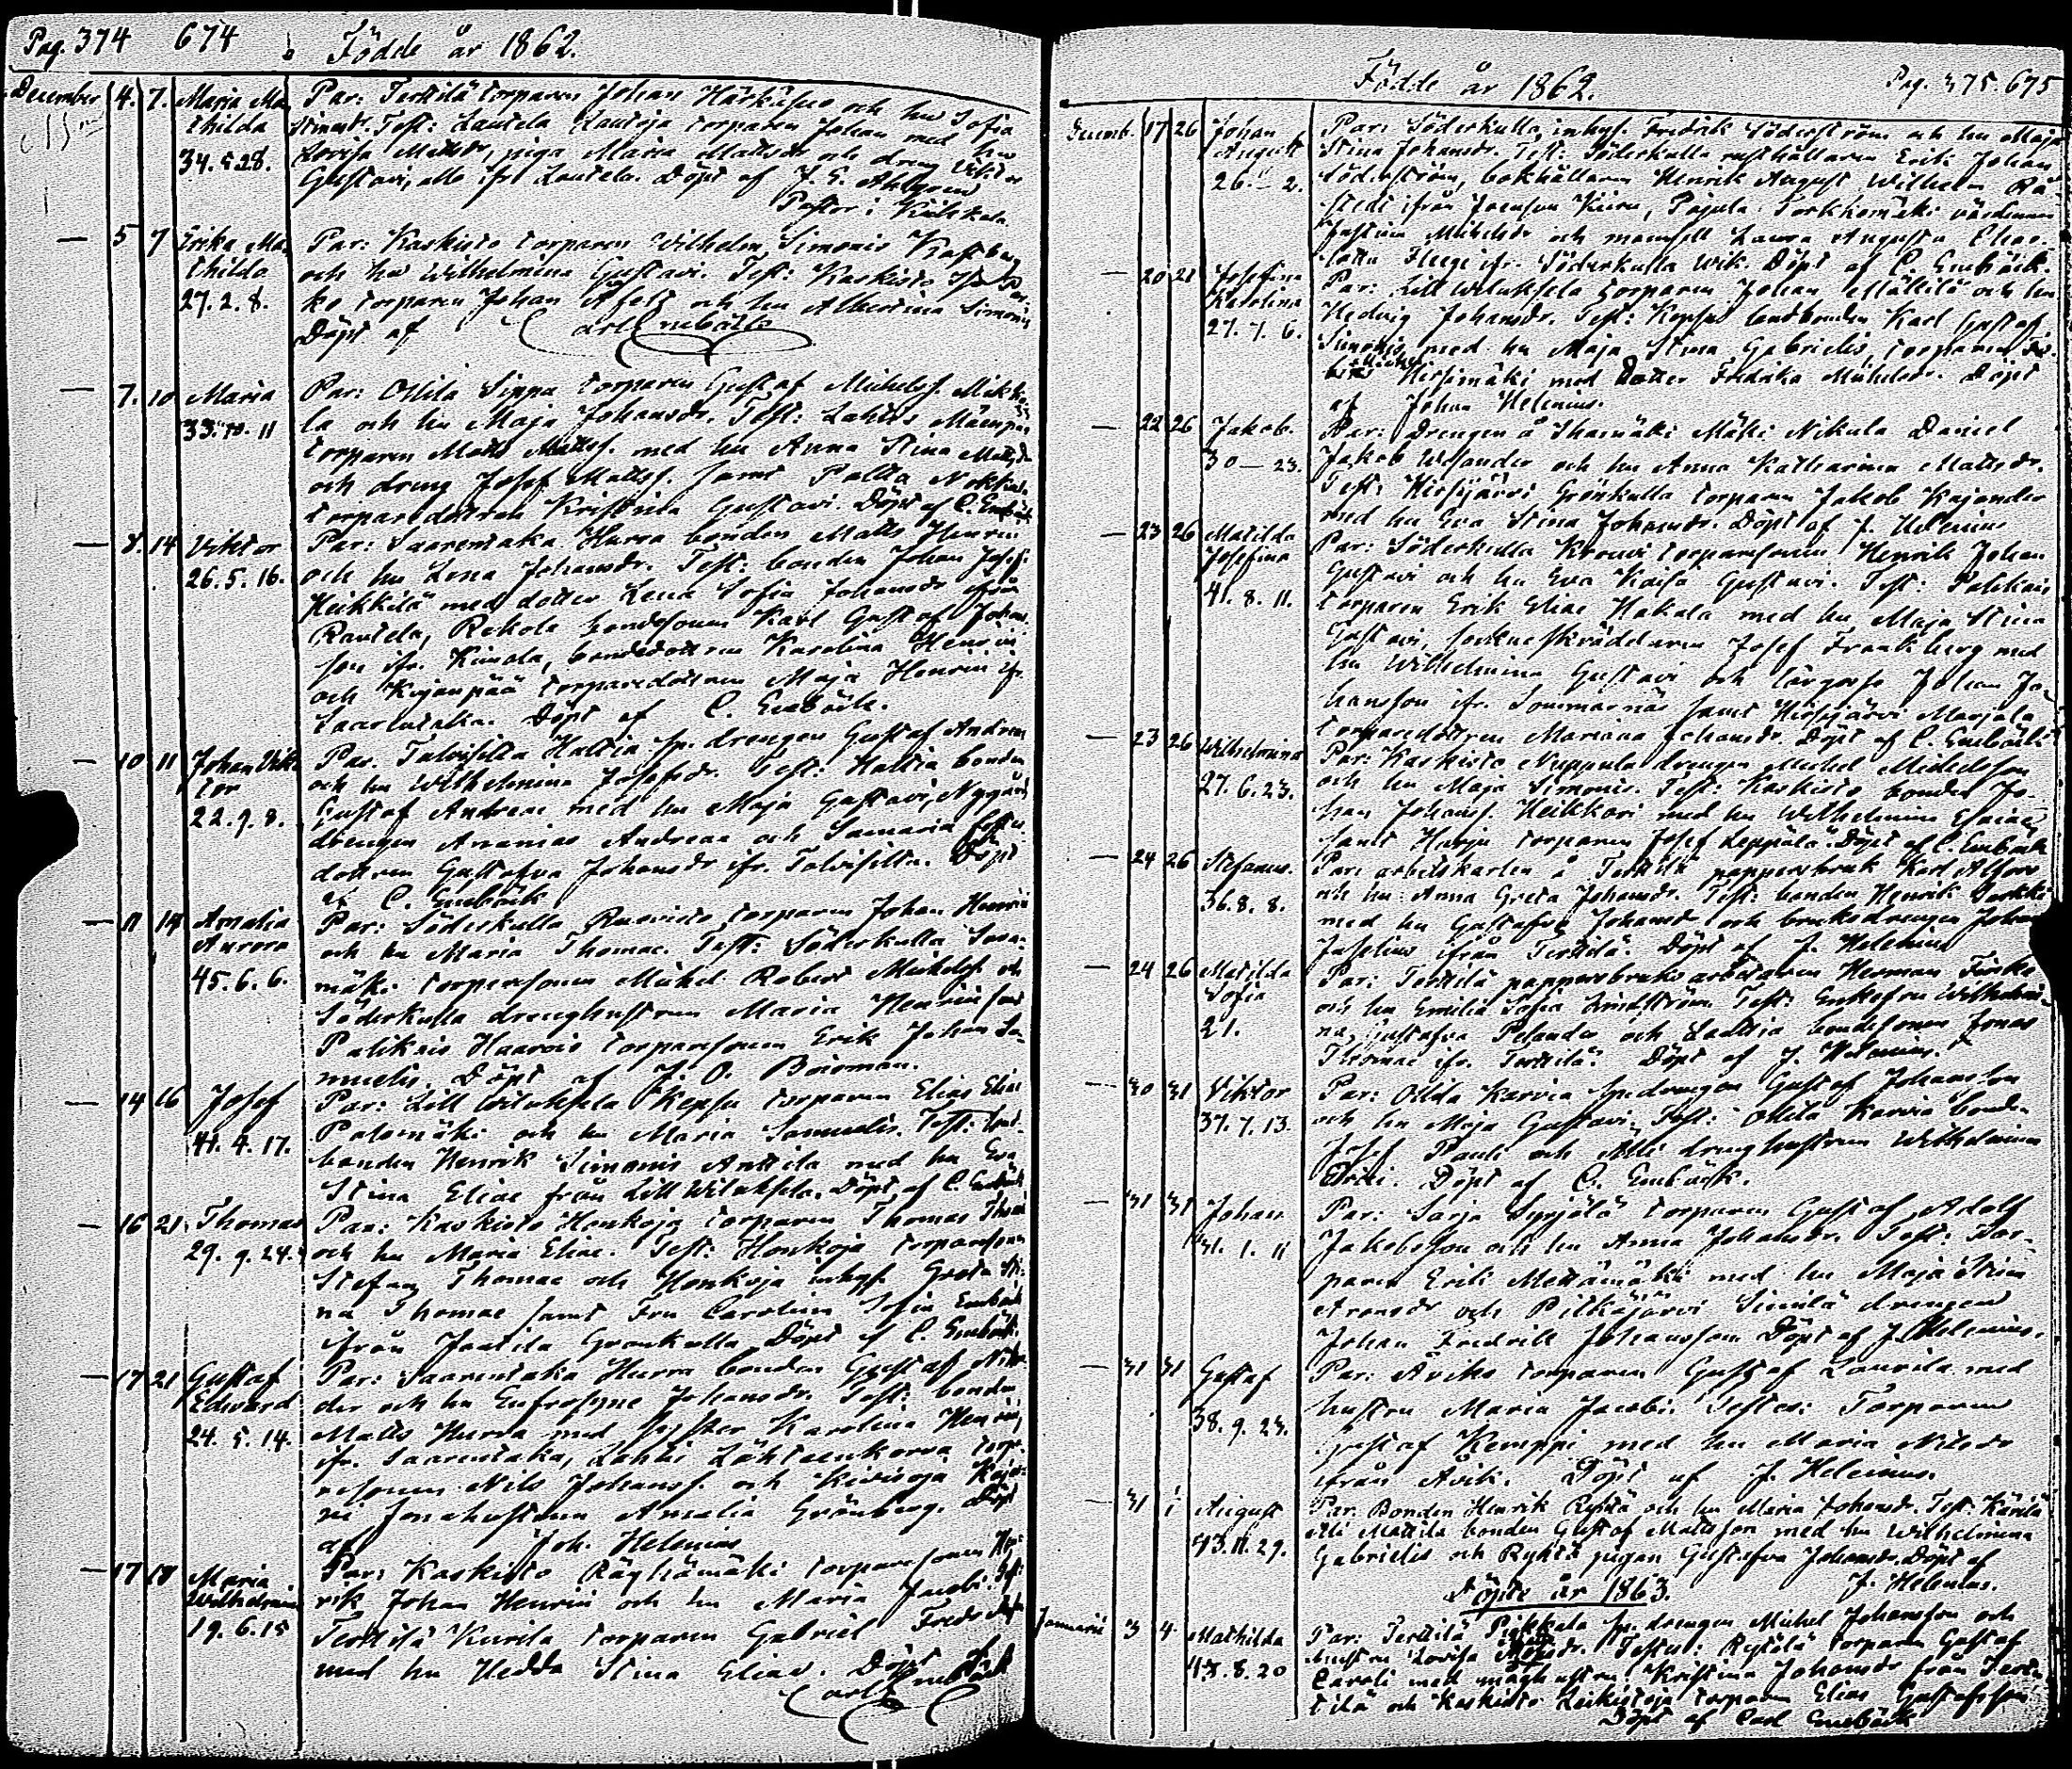 Pag. 374 674 Födde år 1862.
December 4. 7. Maria Ma- Par: Terttilä torparen Johan Härkäpus och hu Sofia
thilda Test: Lautela Lautoja torparen Johan med hu
34. 5 28. Lovisa Mattsdr, piga Maria Mattsdr och dreng Viktor
Gustavi, alla ifr Lautela. Döpt af J. E. Ahlgren
Pastor i Kiikala
— 5 7 Erika Ma- Par: Kaskisto torparen Wilhelm Simonis Kaftberg
thilda och hu Wilhelmina Gustavi. Test: Kaskisto
27. 2. 8. torparen Johan Afelt och hu Albertina Simonis
Döpt af Carl Enebäck
— 7. 10 Maria Par: Ollila Sippa torparen Gustaf Michelss. Mikko-
33. 10. 11 la och hu Maja Johansdr. Test: Lahtis Mäenpää
torparen Matts Mattss. med hu Anna Stina Mattsdr
och dreng Josef Mattss. samt Palta
torparedottren Kristina Gustavi. Döpt af C. Enebäck
— 8. 14 Viktor Par: Saarentaka Hurra bonden Matts Henrici
26. 5. 16. och hu Lena Johansdr. Test: bonden Johan Josefs.
Heikkilä med dotter Lena Sofia Johansdr ifrån
Rautela, Rekola bondesonen Karl Gustaf Johans-
son ifr. Kinala, bondedottren Karolina Henrici
och Kujanpää torparedottren Maja Henrici ifr.
Saarentaka. Döpt af C. Enebäck.
— 10 11 Johan Vik- Par. Talvisilta Hattia sp. drengen Gustaf Andreae
tor och hu Wilhelmina Josefsdr. Test: Hattia bonden
22. 9. 8. Gustaf Andreae med hu Maja Gustavi, Nygård
drengen Ananias Andreae och Samaria
dottren Gustafva Johansdr ifr. Talvisilta. Döpt
af C. Enebäck
— 11 14 Amalia Par: Söderkulla Ruovisto torparen Johan Henrici
Aurora och hu Maria Thomae. Test: Söderkulla
45. 6. 6. mäki torparesonen Michel Robert Michelss. och
Söderkulla drenghustrun Maria Henrici samt
Palikais Haarois torparesonen Erik Johan Sa-
muelis. Döpt af J. O. Boisman.
— 14 16 Josef Par: Lill Wiluksela Keppu torparen Elias Eliae
41. 4. 17. Palomäki och hu Maria Samuelis. Test: land-
bonden Henrik Simonis Anttila med hu Eva
Stina Eliae från Lill Wiluksela. Döpt af C. Enebäck
— 16 21 Thomas Par: Kaskisto Honkoja torparen Thomas Thomae
29. 9. 24. och hu Maria Eliae. Test: Honkoja torparesonen
Stefan Thomae och Honkoja inhys. Greta Sti-
na Thomae samt Fru Carolina Sofia Enebäck
ifrån Jaatila Grönkulla Döpt af C. Enebäck.
— 17 21 Gustaf Par: Saarentaka Hurra bonden Gustaf
Edward der och hu Eufrosyne Johansdr. Test: bonden
24. 5. 14. Matts Hurra med syster Karolina Henrici,
ifr. Saarentaka, Lahti Lähteenkorva torpa-
resonen Nils Johanss. och Kivisoja
Amalia Grönberg. Döpt
af Joh. Helenius
— 17 18 Maria Par: Kaskisto Räyhämäki torparesonen Hen-
Wilhelmina rik Johan Henrici och hu Maria Jacobi. Test:
19. 6. 15 Terttilä Kurila torparen Gabriel
med hu Hedda Stina Eliae. Döpt af
Carl Enebäck
Födde år 1862. Pag. 375. 675
Decemb. 17 26 Johan Par: Söderkulla inhys. Fredrik Söderström och hu Maja
August Stina Johansdr. Test: Söderkulla rusthållaren Erik Johan
26. — 2. Söderström, bokhållaren Henrik August Wilhelm
ifrån Kiiru, Pajula Torkhomäki värdinnan
Justina Michelsdr och mamsell Laura Augusta Char-
lotta ifr. Söderkulla Wik. Döpt af C. Enebäck.
— 20 21 Josefina Par: Lill Wiluksela torparen Johan Mattila och hu
Karolina Hedvig Johansdr. Test: Keppu landbonden Karl Gustaf
27. 7. 6. Simonis, med hu Maja Stina Gabrielis, torparen
Hirsimäki med dotter Fredrika Michelsdr. Döpt
af Johan Helenius.
— 22 26 Jakob. Par: Drengen å Ihamäki Mäki Nikula Daniel
30 — 23. Jakob Welander och hu Anna Katharina Mattsdr.
Test: Hirsijärvi Grönkulla torparen Jakob Kajander
med hu Eva Stina Johansdr. Döpt af J. Helenius
— 23 26 Matilda Par: Söderkulla Krouvi torparesonen Henrik Johan
Josefina Gustavi och hu Eva Kaisa Gustavi. Test: Palikais
41. 8. 11. torparen Erik Eliae Hakala med hu Maja Stina
Gustavi, sockneskräddaren Josef Frankberg med
hu Wilhelmina Gustavi och lärgosse Johan Jo-
hansson ifr. Sommarnäs samt Hirsijärvi Marjala
torparedottren Mariana Johansdr. Döpt af C. Enebäck
— 23 26 Wilhelmina Par: Kaskisto Nuppula drengen Michel Michelsson
27. 6. 23. och hu Maja Simonis. Test: Kaskisto bonden Jo-
han Johanss. Heikkari med hu Wilhelmina Esaiae
samt Harju torparen Josef Leppälä. Döpt af C. Enebäck
— 24 26 Stefanus. Par: arbetskarlen å Terttilä pappersbruk Karl Alfors
36. 8. 8. och hu Anna Greta Johansdr. Test: bonden Henrik
med hu Gustafva Johansdr och bruksdrengen Johan
Juselius ifrån Terttilä. Döpt af J. Helenius
— 24 26 Matilda Par: Terttilä pappersbruks arbetaren Herman
Sofia och hu Emilia Sofia Lindström Test: Enkefru Wilhelmi-
21. na Gustafva Pelander och Lauttia bondesonen Jonas
Thomae ifr. Terttilä. Döpt af J. Helenius.
— 30 31 Viktor Par: Ollila Karvia sp. drengen Gustaf Johansson
37. 7. 13. och hu Maja Gustavi, Test: Ollila Karvia bonden
Josef Pauli och Alli drenghustrun Wilhelmina
Erici. Döpt af C. Enebäck.
— 31 31 Johan Par: Sarja Syrjälä torparen Gustaf Adolf
31. 1. 11 Jakobsson och hu Anna Johansdr. Test: Tor-
paren Erik Mettämäki med hu Maja Stina
Aronsdr och Pitkäjärvi Simila drengen
Johan Fredrik Johansson Döpt af J. Helenius.
— 31 31 Gustaf Par: Aviko torparen Gustaf Laurila med
38. 9. 23. hustru Maria Jacobi. Testes: Torparen
Gustaf Kemppi med hu Maria Nilsdr
ifrån Åvik. Döpt af J. Helenius.
— 31 1 August Par. Bonden Henrik Rytkö och hu Maria Johansdr. Test. Kärilä
43. 11. 29. Ali Mattila bonden Gustaf Mattsson med hu Wilhelmina
Gabrielis och Rytkö pigan Gustafva Johansdr. Döpt af
J. Helenius.
Döpte år 1863.
Januarii 3 4 Mathilda Par: Terttilä Pirkkala sp. drengen Michel Johansson och
43. 8. 20 hustru Lovisa Testes: Rytölä torparen Gustaf
Caroli med måghustru Kristina Johansdr från Tert-
tilä och Kaskisto Leikkistoja torparen Elias Gustafsson
Döpt af Carl Enebäck